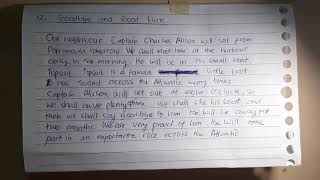 12. Goodbye and Good Luck.
Our neighbour, Captain Charles Alison will sail from
Portsmouth tomorrow. We shall meet him at the harbour
early in the morning. He will be in his small boat,
Topsail. Topsail is a famous little boat
It has sailed across the Atlantic many times
Captain Alison will set out at eight o'clock, so
we shall have plenty time. We shall see his boat and
then we shall say goodbye to him. He will be away for
two months. We are very proud of him. He will take
part in an importante race across the Atlantic